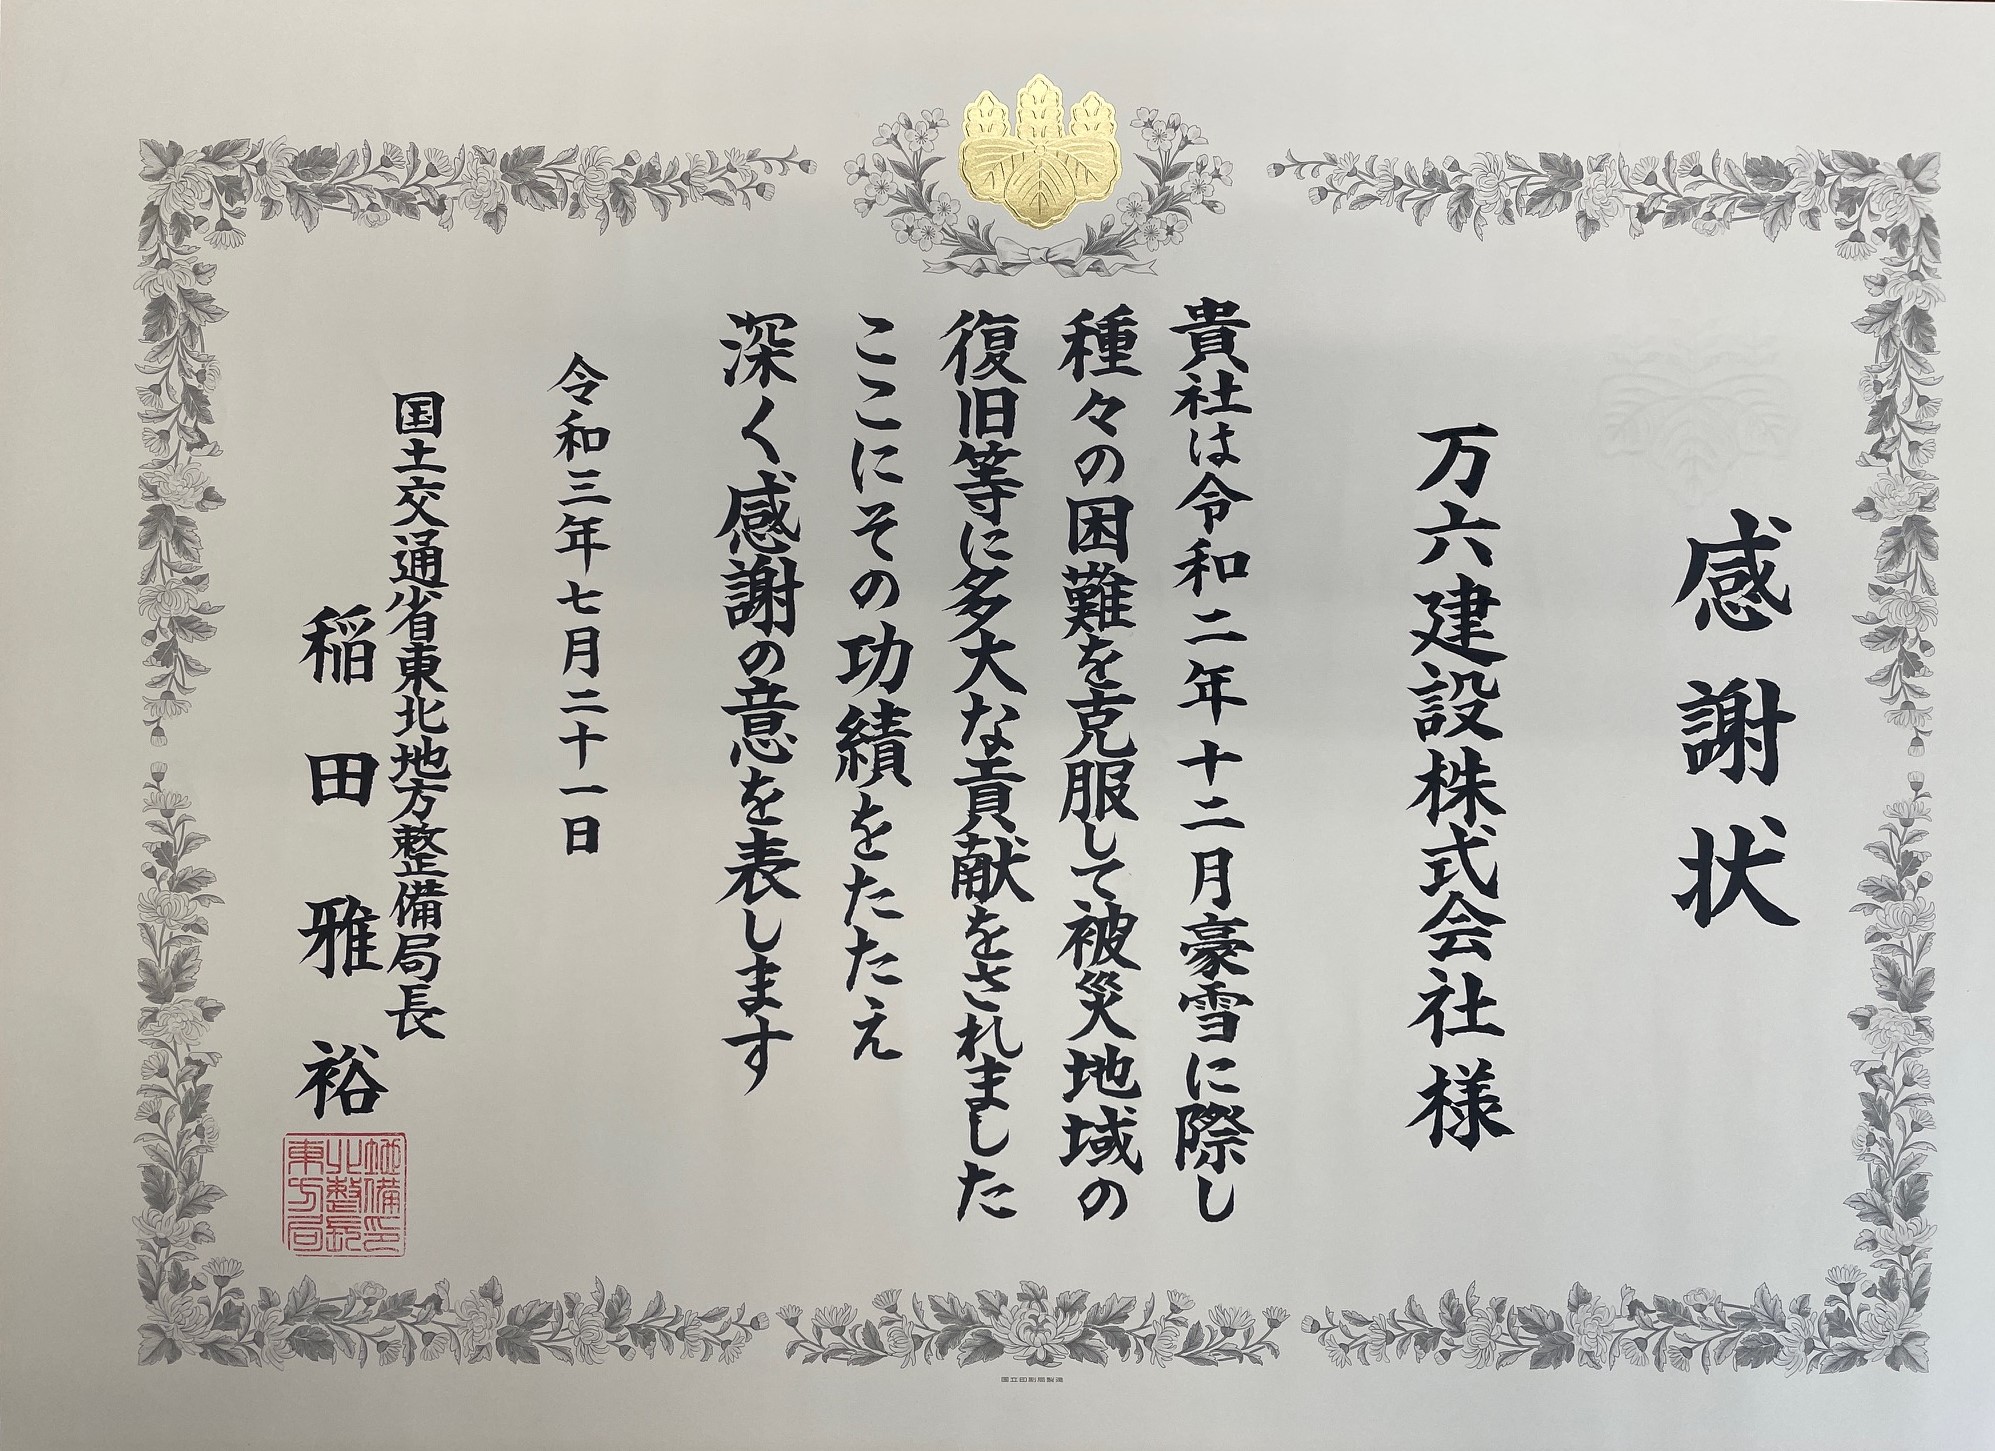 感謝状
万六建設株式会社様
貴社は令和二年十二月豪雪に際し
種々の困難を克服して被災地域の
復旧等に多大な貢献をされました
ここにその功績をたたえ
深く感謝の意を表します
令和三年七月二十一日
国土交通省東北地方整備局長
稲田雅裕
東北地方整備局長印
国立印刷局製造